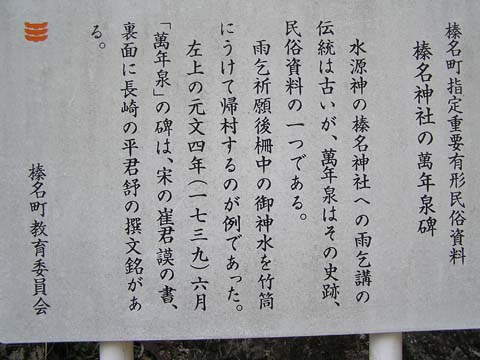 榛名町指定重要有形民俗資料
榛名神社の萬年泉碑
水源神の榛名神社への雨乞講の
伝統は古いが、萬年泉はその史跡、
民俗資料の一つである。
雨乞祈願後柵中の御神水を竹筒
にうけて帰村するのが例であった。
左上の元文四年(一七三九)六月
「萬年泉」の碑は、宋の崔君謨の書、
裏面に長崎の平君舒の撰文銘があ
る。
榛名町教育委員会